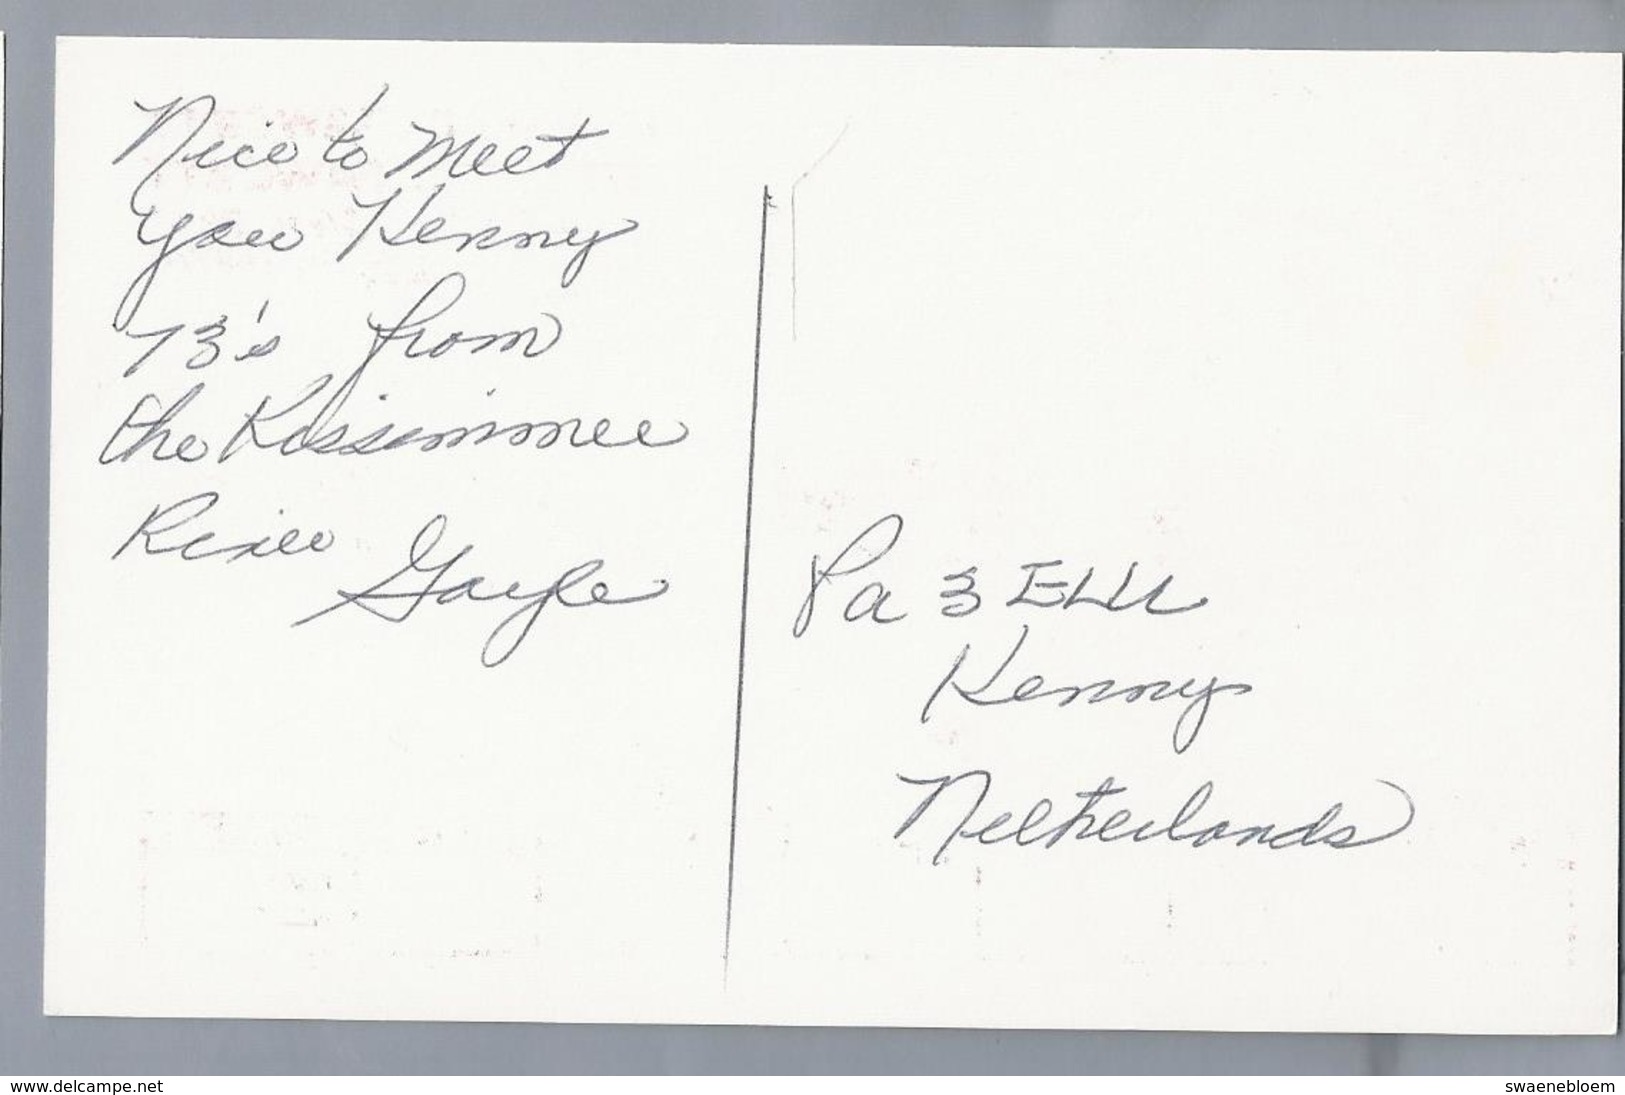 Nice to Meet
you Kenny
73's from
the Kissimmee
River
Gayle
Pa 3 ELU
Kenny
Netherlands
www.delcampe.net
swaenebloem